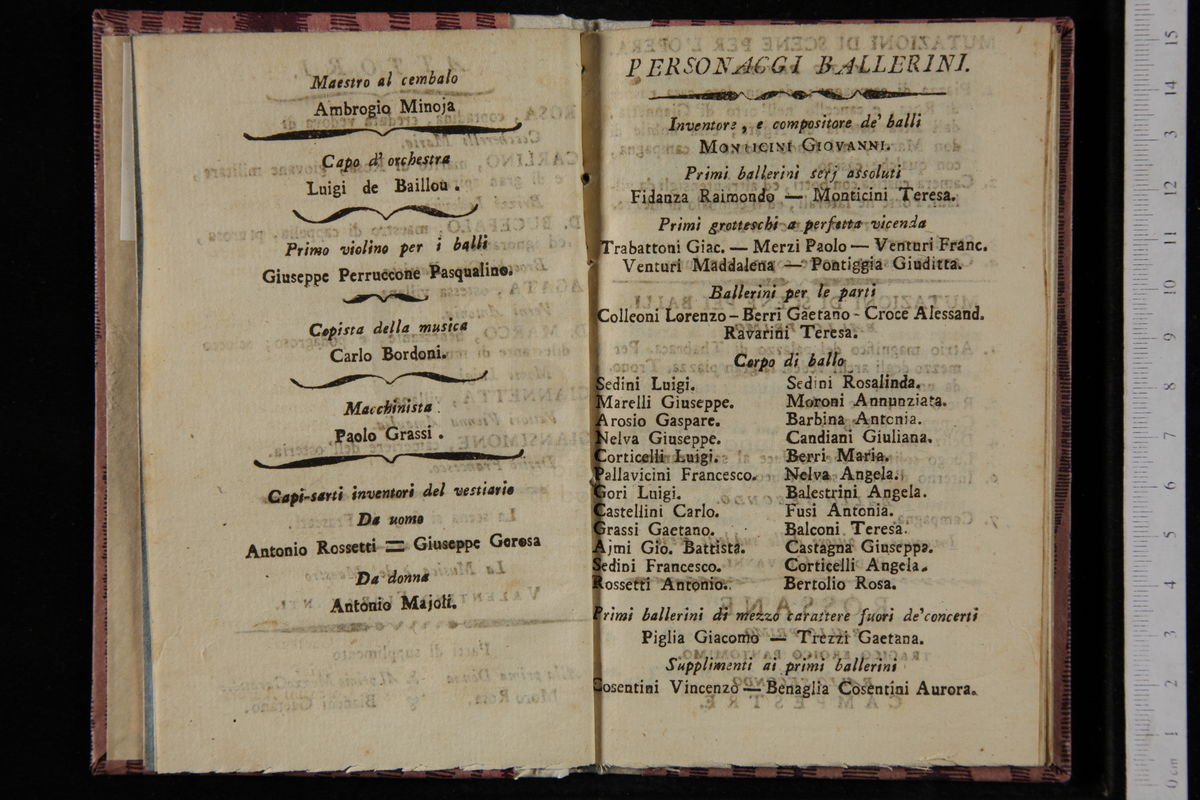 Maestro al cembalo
Ambrogio Minoja
Capo d' orchestra
Luigi de Baillou.
Primo violino per i balli
Giuseppe Perruccone Pasqualino.
Copista della musica
Carlo Bordoni.
Macchinista.
Paolo Grassi.
Capi-sarti inventori del vestiario
Da uomo
Antonio Rossetti = Giuseppe Gerosa
Da donna
Antonio Majoli.
PERSONAGGI BALLERINI.
Inventore, e compositore de' balli
MONTICINI GIOVANNI.
Primi ballerini serj assoluti
Fidanza Raimondo — Monticini Teresa.
Primi grotteschi a perfetta vicenda
Trabattoni Giac. — Merzi Paolo — Venturi Franc.
Venturi Maddalena — Pontiggia Giuditta.
Ballerini per le parti
Colleoni Lorenzo - Berri Gaetano - Croce Alessand.
Ravarini Teresa.
Corpo di ballo
Sedini Luigi.
Marelli Giuseppe.
Arosio Gaspare.
Nelva Giuseppe.
Corticelli Luigi.
Pallavicini Francesco.
Gori Luigi.
Castellini Carlo.
Grassi Gaetano.
Ajmi Gio. Battista.
Sedini Francesco.
Rossetti Antonio.
Sedini Rosalinda.
Moroni Annunziata.
Barbina Antonia.
Candiani Giuliana.
Berri Maria.
Nelva Angela.
Balestrini Angela.
Fusi Antonia.
Balconi Teresa.
Castagna Giuseppa.
Corticelli Angela.
Bertolio Rosa.
Primi ballerini di mezzo carattere fuori de' concerti
Piglia Giacomo — Trezzi Gaetana.
Supplimenti ai primi ballerini
Cosentini Vincenzo — Benaglia Cosentini Aurora.
0 cm 1 2 3 4 5 6 7 8 9 10 11 12 13 14 15